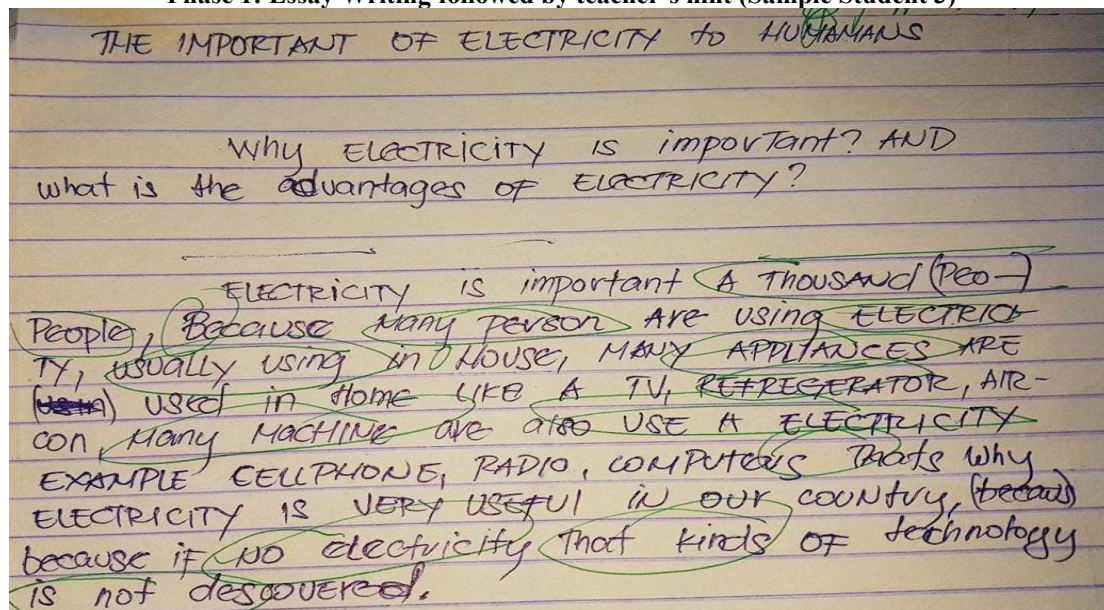 Phase 1: Essay Writing followed by teacher's hint (Sample Student 3)
THE IMPORTANT OF ELECTRICITY to HUMANS
Why ELECTRICITY IS important? AND
what is the advantages OF ELECTRICITY?
ELECTRICITY IS important A THOUSANd (Peo-)
People, Because Many person Are using ELECTRICI-
TY, usually using in House, MANY APPLIANCES ARE
used in Home LIKE A TV, REFREGERATOR, AIR-
con, Many MACHINE are also USE A ELECTRICITY
EXAMPLE CELLPHONE, RADIO, COMPUTERS Thats why
ELECTRICITY IS VERY USEFUl iN our COUNtry, (becaus)
because if NO electricity That kinds OF technology
is not descovered.